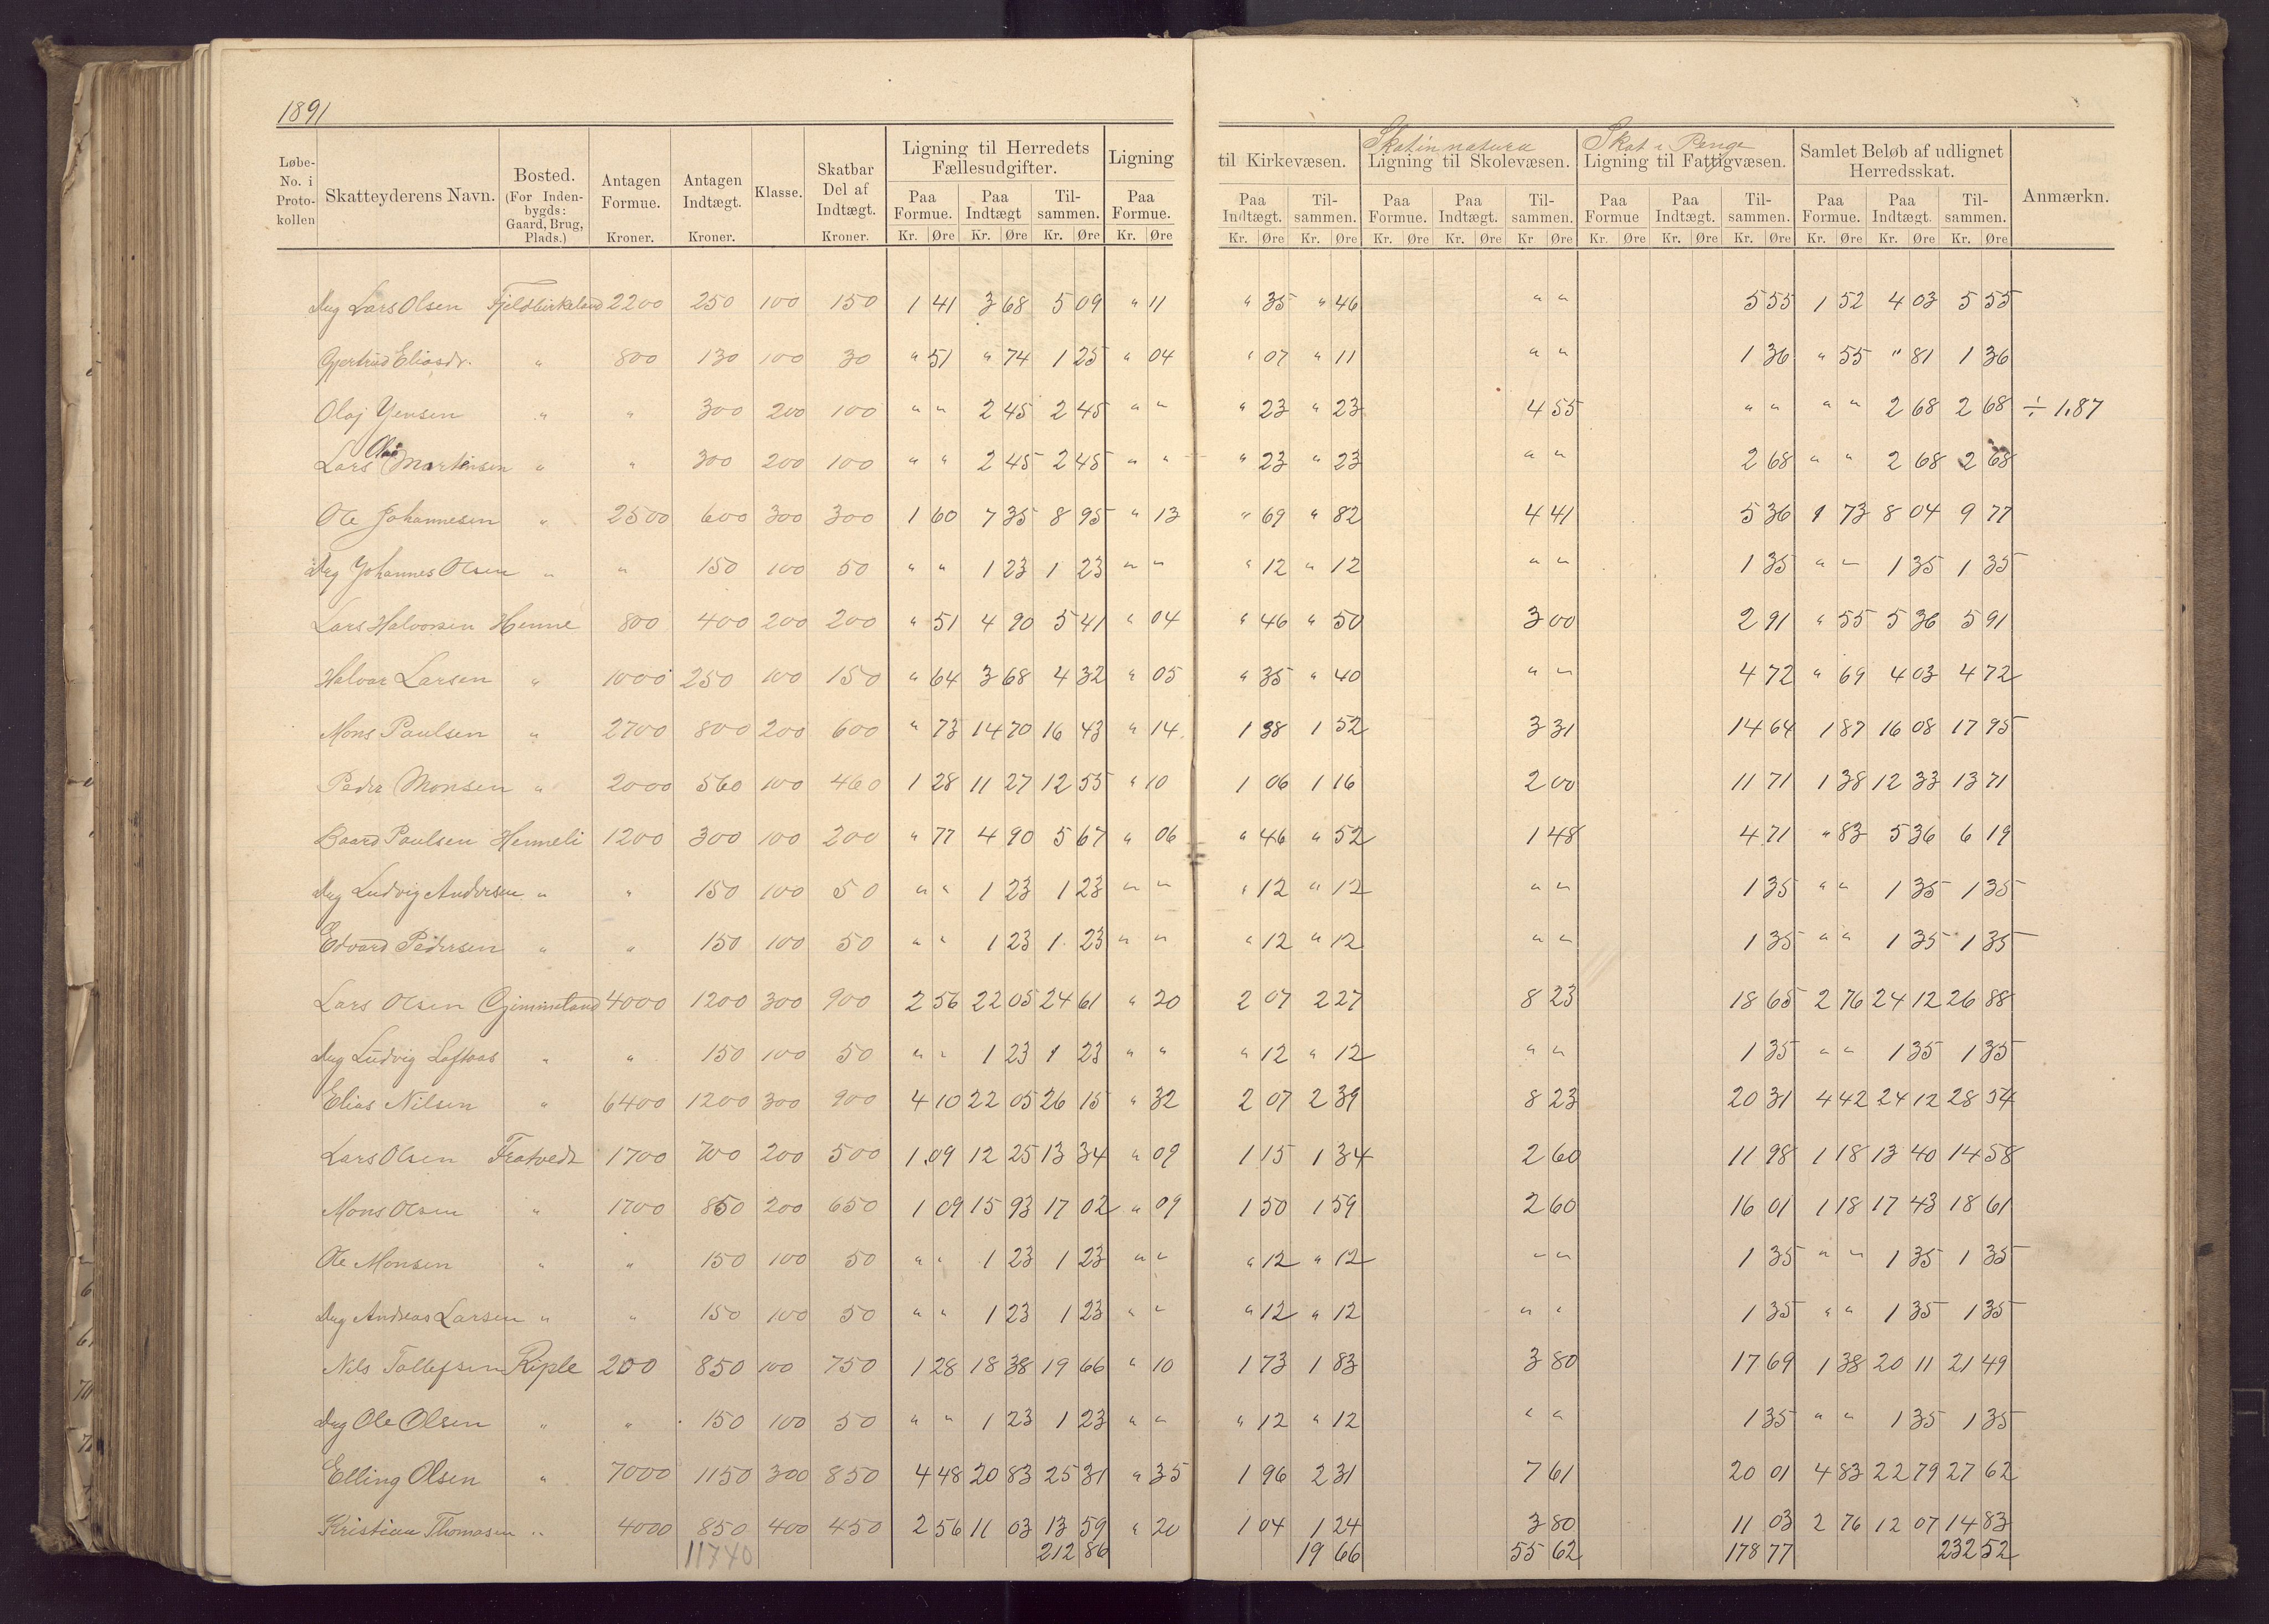 1891
Løbe- No. i Proto- kollen | Skatteyderens Navn. | Bosted. (For Inden- bygds: Gaard, Brug, Plads.) | Antagen Formue. Kroner. | Antagen Indtægt. Kroner. | Klasse. | Skatbar Del af Indtægt. Kroner. | Ligning til Herredets Fællesudgifter. Paa Formue. Kr. Øre Paa Indtægt Kr. Øre Til- sammen. Kr. Øre | Ligning Paa Formue. Kr. Øre | til Kirkevæsen. Paa Indtægt. Kr. Øre Til- sammen. Kr. Øre | Skat in natura Ligning til Skolevæsen. Paa Formue. Kr. Øre Paa Indtægt. Kr. Øre Til- sammen. Kr Øre | Skat i Penge Ligning til Fattigvæsen. Paa Formue Kr. Øre Paa Indtægt. Kr. Øre Til- sammen. Kr. Øre | Samlet Beløb af udlignet Herredsskat. Paa Formue. Kr. Øre Paa Indtægt. Kr. Øre Til- sammen. Kr. Øre | Anmærkn.
Lars Olsen Fjeldbirkeland 2200 250 100 150 1 41 3 68 5 09 " 11 " 35 " 46 " " 5 55 1 52 4 03 5 55
Gjertrud Eliasdr. " 800 130 100 30 " 51 " 74 1 25 " 04 " 07 " 11 " " 1 36 " 55 " 81 1 36
Olaj Yensen " " 300 200 100 " " 2 45 2 45 " " " 23 " 23 4 55 " " " " 2 68 2 68 ÷ 1,87
Lars Martinsen " " 300 200 100 " " 2 45 2 45 " " " 23 " 23 " " 2 68 " " 2 68 2 68
Ole Johannesen " 2500 600 300 300 1 60 7 35 8 95 " 13 " 69 " 82 4 41 5 36 1 73 8 04 9 77
Johannes Olsen " " 150 100 50 " " 1 23 1 23 " " " 12 " 12 " " 1 35 " " 1 35 1 35
Lars Halvorsen Henne 800 400 200 200 " 51 4 90 5 41 " 04 " 46 " 50 3 00 2 91 " 55 5 36 5 91
Halvor Larsen " 1000 250 100 150 " 64 3 68 4 32 " 05 " 35 " 40 " " 4 72 " 69 4 03 4 72
Mons Paulsen " 2700 800 200 600 " 73 14 70 16 43 " 14 1 38 1 52 3 31 14 64 1 87 16 08 17 95
Peder Monsen " 2000 560 100 460 1 28 11 27 12 55 " 10 1 06 1 16 2 00 11 71 1 38 12 33 13 71
Baard Paulsen Henneli 1200 300 100 200 " 77 4 90 5 67 " 06 " 46 " 52 1 48 4 71 " 83 5 36 6 19
Ludvig Andersen " " 150 100 50 " " 1 23 1 23 " " " 12 " 12 " " 1 35 " " 1 35 1 35
Edvard Pedersen " " 150 100 50 " " 1 23 1 23 " " " 12 " 12 " " 1 35 " " 1 35 1 35
Lars Olsen Gjimmeland 4000 1200 300 900 2 56 22 05 24 61 " 20 2 07 2 27 8 23 18 65 2 76 24 12 26 88
Ludvig Loftaas " " 150 100 50 " " 1 23 1 23 " " " 12 " 12 " " 1 35 " " 1 35 1 35
Elias Nilsen " 6400 1200 300 900 4 10 22 05 26 15 " 32 2 07 2 39 8 23 20 31 4 42 24 12 28 54
Lars Olsen Tratvedt 1700 700 200 500 1 09 12 25 13 34 " 09 1 15 1 34 2 60 11 98 1 18 13 40 14 58
Mons Olsen " 1700 850 200 650 1 09 15 93 17 02 " 09 1 50 1 59 2 60 16 01 1 18 17 43 18 61
Ole Monsen " " 150 100 50 " " 1 23 1 23 " " " 12 " 12 " " 1 35 " " 1 35 1 35
Andreas Larsen " " 150 100 50 " " 1 23 1 23 " " " 12 " 12 " " 1 35 " " 1 35 1 35
Nils Tollefsen Riple 200 850 100 750 1 28 18 38 19 66 " 10 1 73 1 83 3 80 17 69 1 38 20 11 21 49
Ole Olsen " " 150 100 50 " " 1 23 1 23 " " " 12 " 12 " " 1 35 " " 1 35 1 35
Elling Olsen " 7000 1150 300 850 4 48 20 83 25 31 " 35 1 96 2 31 7 61 20 01 4 83 22 79 27 62
Kristian Thomasen " 4000 850 400 450 2 56 11 03 13 59 " 20 1 04 1 24 3 80 11 03 2 76 12 07 14 83
11740 212 86 19 66 55 62 178 77 232 52